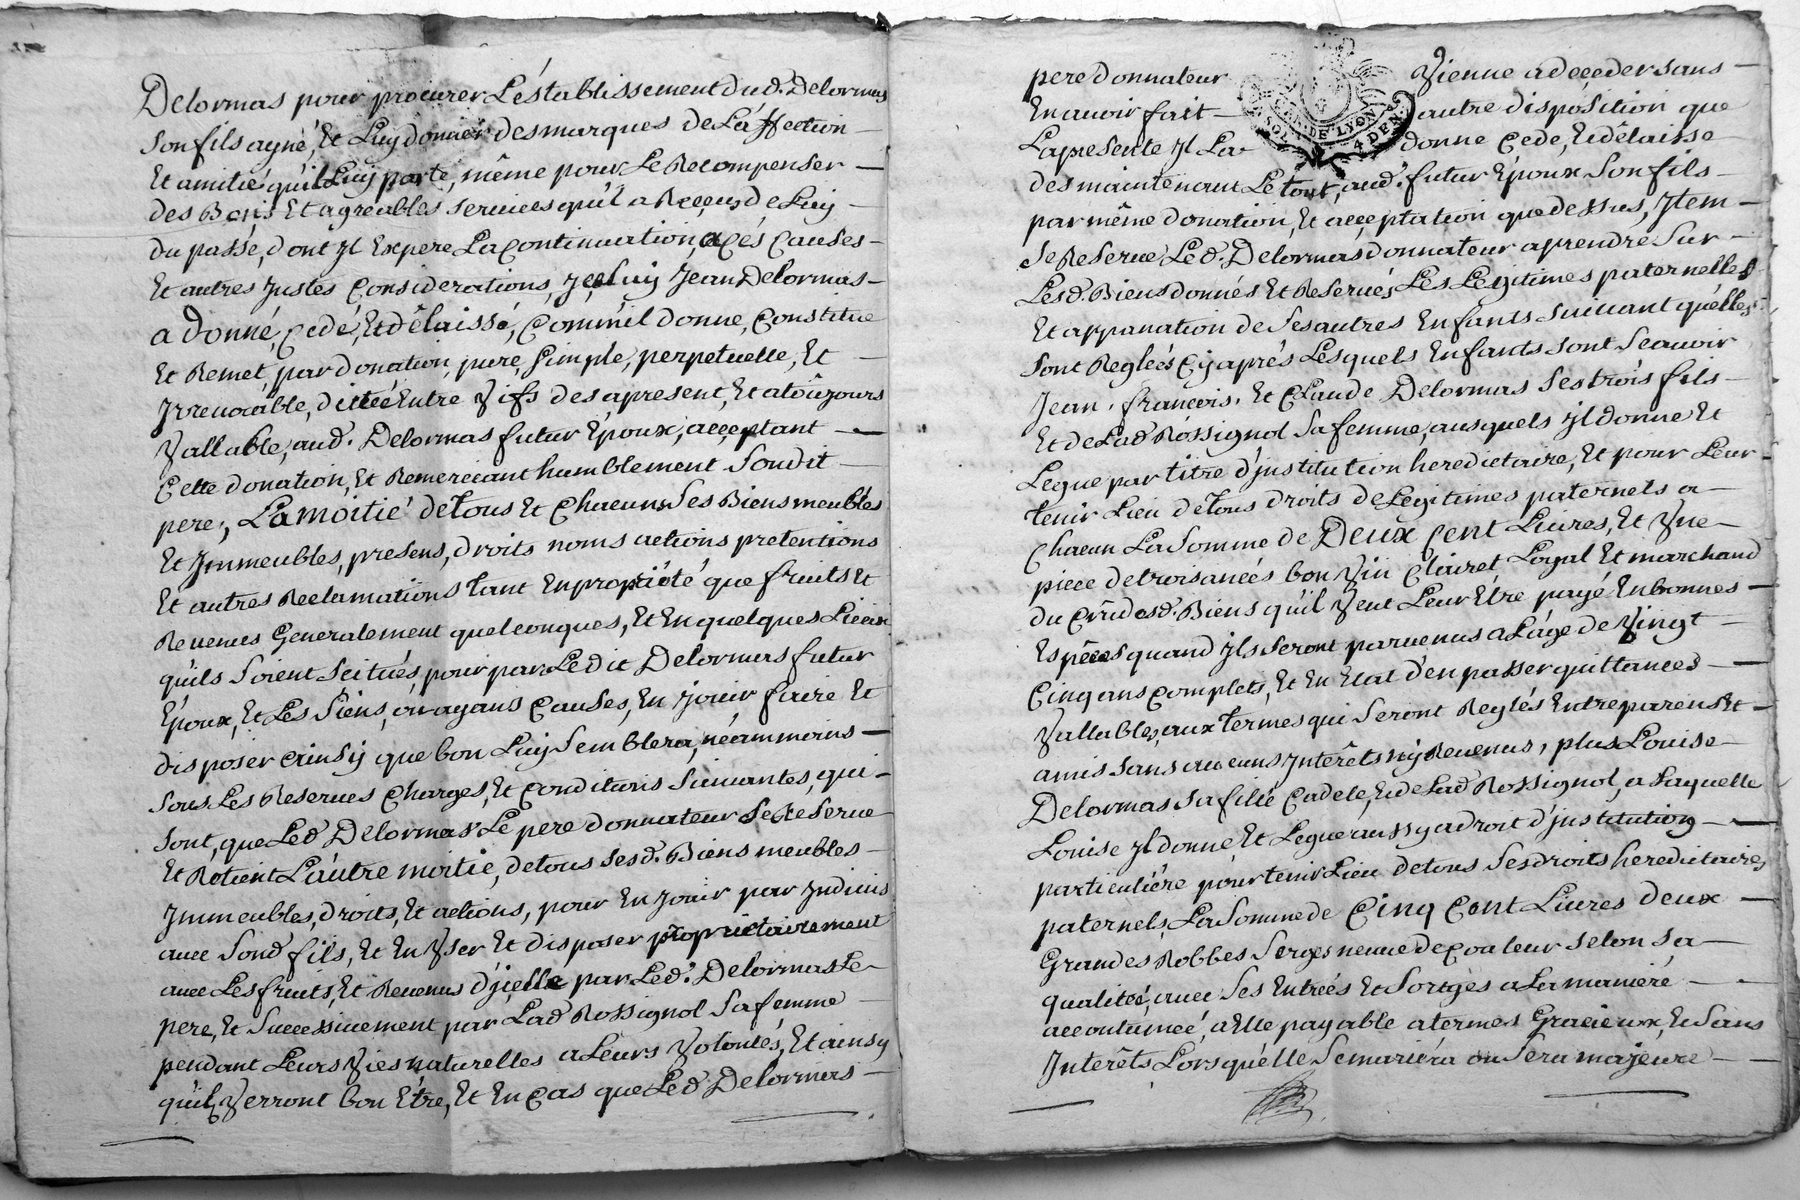 Delormas pour procurer L'éstablissement dud. Delormas
Son fils ayné, Et Luy donner des marques de L'áffection
Et amitié qu'il Luy porte, même pour Le Recompenser
des Bons Et agréables services qu'il a Reçeus de Luy
du passé, dont Jl Expere La Continuation, a Çés Causes
Et autres Justes Considerations, Jceluy Jean Delormas
a donné, Cedé, Et délaissé, Comm'il donne, Constitue
Et Remet, par donation, pure, simple, perpetuelle, Et
Jrrevocable, ditte Entre Vifs des apresent, Et atoûjours
Vallable, aud. Delormas futur Epoux, acceptant
Cette donation, Et Remerciant humblement Sondit
pere, La moitié de tous Et Chacuns Ses Biens meubles
Et Jmmeubles, presens, droits noms actions pretentions
Et autres Reclamations tant En propriété que fruits Et
Revenus Generalement quelconques, Et En quelques Lieux
qu'ils Soient Scitués, pour par Ledit Delormas futur
Epoux, Et Les Siens, ou ayans Causes, En Jouir faire Et
disposer ainsy que bon Luy Semblera, néammoins
sous Les Reserves Charges, Et Conditions Suivantes, qui
sont, que Led. Delormas Le pere donnateur Se Reserve
Et Retient L'autre moitié, de tous sesd. Biens meubles
Jmmeubles, droits, Et actions, pour En Jouir par Jndivis
avec Sond. fils, Et En Vser Et disposer proprietairement
avec Les fruits, Et Revenus d'jcelle par Led. Delormas Le
pere, Et Successivement par Lad. Rossignol Sa femme
pendant Leurs Vies naturelles a Leurs Volontés, Et ainsy
qu'il Verront bon Etre, Et En Cas que Led. Delormas
pere donnateur Vienne a deceder sans
En avoir fait autre disposition que
La presente Jl La donne Cede, Et délaisse
des maintenant Le tout, aud. futur Epoux Son fils
par même donation, Et acceptation que dessus, Jtem
Se Reserve Led. Delormas donnateur a prendre Sur
Lesd. Biens donnés Et Reservés Les Legitimes paternelles
Et appanation de Ses autres Enfants Suivant qu'élles
sont Reglées Cy aprés Lesquels Enfants sont Scavoir
Jean, françois, Et Claude Delormas Ses trois fils
Et de Lad. Rossignol Sa femme, ausquels Jl donne Et
Legue par titre d'jnstitution heredietaire, Et pour Leur
tenir Lieu de tous droits de Legitimes paternels a
Chacun La Somme de Deux Cent Livres, Et Vne
piece de trois aneés bon Vin Clairet Loyal Et marchand
du Crû desd. Biens qu'il Veut Leur Etre payé En bonnes
Espéces quand Jls Seront parvenus a L'age de Vingt
Cinq ans Complets, Et En Etat d'en passer quittances
Vallables, aux termes qui Seront Reglés Entre parens Et
amis sans aucuns Jnterêts ny Revenus, plus Louise
Delormas Sa fille Cadete, Et de Lad. Rossignol, a Laquelle
Louise Jl donne Et Legue aussy a droit d'jnstitution
particuliére pour tenir Lieu de tous Ses droits heredietaires
paternels La Somme de Cinq Cent Livres deux
Grandes Robbes Serges neuve de Couleur Selon Sa
qualiteé, avec Ses Entreés Et Sortyes a La maniére
accoutumeé, a Elle payable a termes Gracieux, Et Sans
Jnterêts Lorsqu'élle Se mariera ou Sera majeure
GEN. DE LYON
4 DEN.